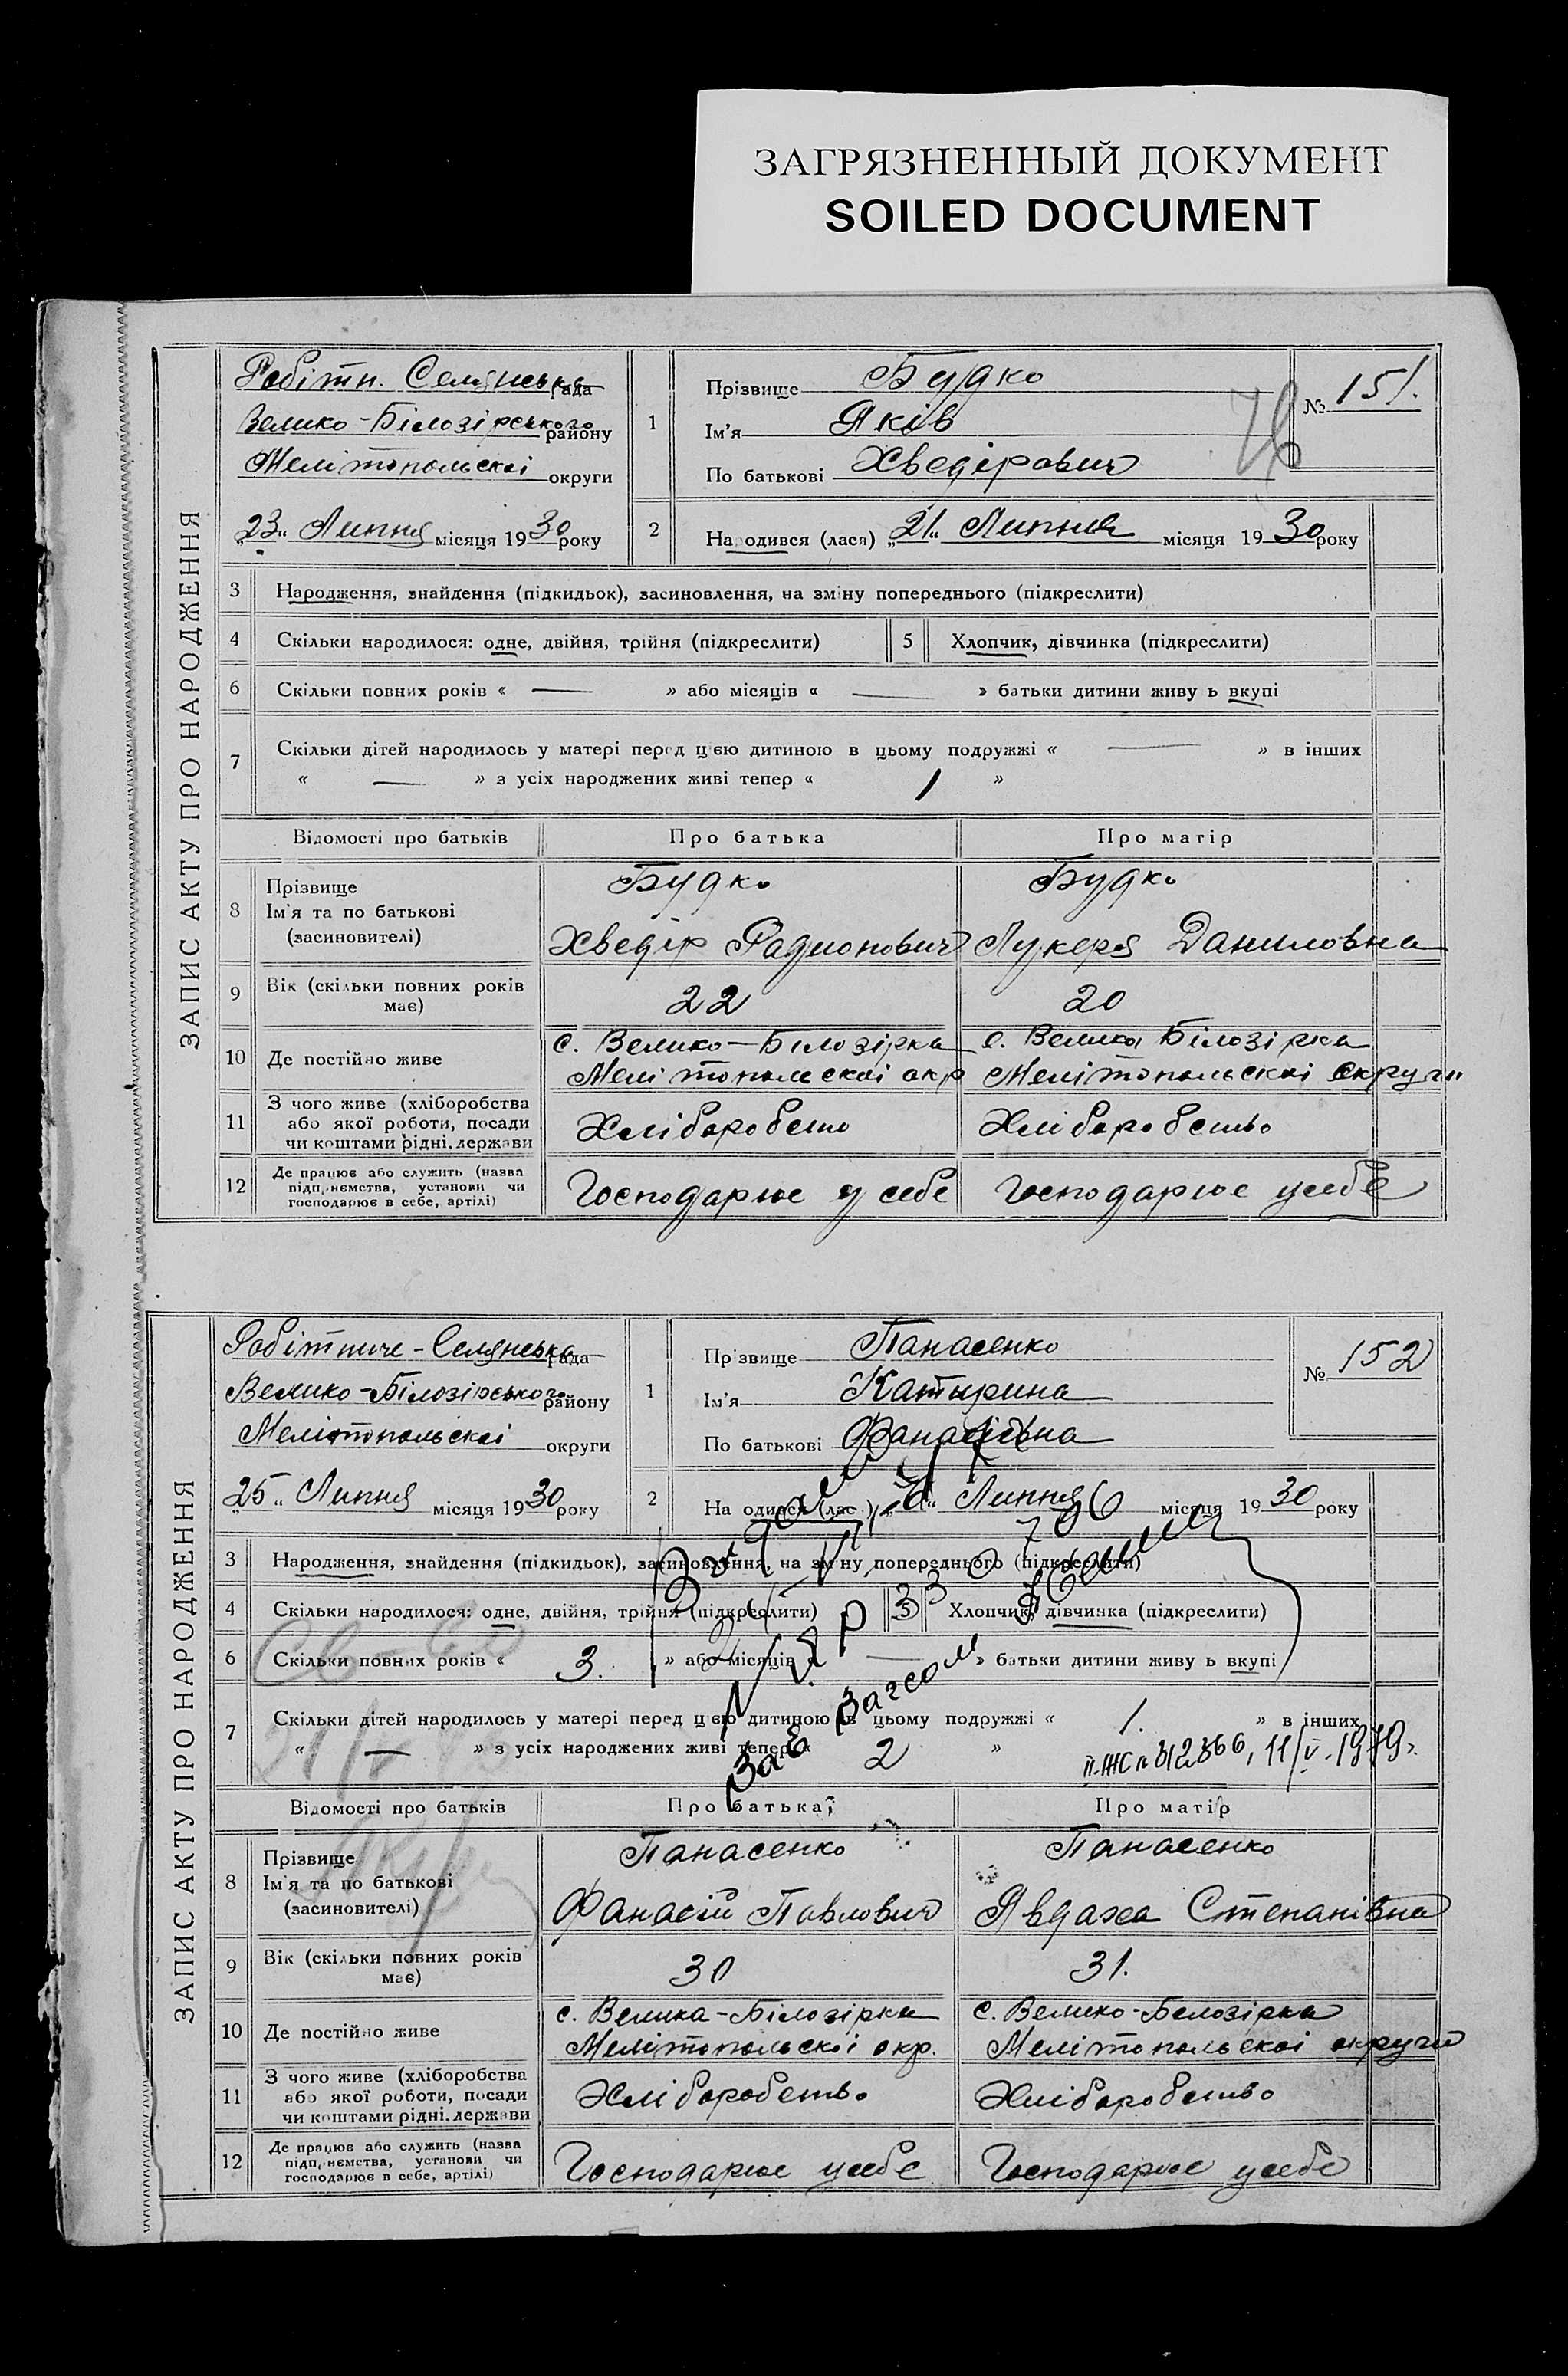 ЗАГРЯЗНЕННЫЙ ДОКУМЕНТ
SOILED DOCUMENT
ЗАПИС АКТУ ПРО НАРОДЖЕННЯ
Робітн. Селянська рада
Велико-Білозірського району
Мелітопольскоі округи
„23“ Липня місяця 1930 року
1 Прізвище Будко
Ім'я Яків
По батькові Хведірович
№ 151.
76
2 Народився (лася) „21“ Липня місяця 1930 року
3 Народження, знайдення (підкидьок), засиновлення, на зміну попереднього (підкреслити)
4 Скільки народилося: одне, двійня, трійня (підкреслити) 5 Хлопчик, дівчинка (підкреслити)
6 Скільки повних років « — » або місяців « — » батьки дитини живу ь вкупі
7 Скільки дітей народилось у матері перед цією дитиною в цьому подружжі « — » в інших
« — » з усіх народжених живі тепер « 1 »
Відомості про батьків Про батька Про матір
8 Прізвище
Ім'я та по батькові
(засиновителі)
Будко
Хведір Радионович
Будко
Лукеря Даниловна
9 Вік (скільки повних років
має)
22 20
10 Де постійно живе
с. Велико-Білозірка
Мелітопольскоі окр
с. Велика Білозірка
Мелітопольскоі округи
11 З чого живе (хліборобства
або якої роботи, посади
чи коштами рідні, держави
Хліборобство
Хліборобство
12 Де працює або служить (назва
підприємства, установи чи
господарює в себе, артілі)
Господарює у себе
Господарює у себе
ЗАПИС АКТУ ПРО НАРОДЖЕННЯ
Робітниче-Селянська рада
Велико-Білозірського району
Мелітопольскоі округи
„25“ Липня місяця 1930 року
1 Прізвище Панасенко
Ім'я Катирина
По батькові Фанасівна
№ 152
2 На одився (лас ) Липня місяця 1930 року
3 Народження, знайдення (підкидьок), засиновлення, на зміну попереднього (підкреслити)
4 Скільки народилося: одне, двійня, трійня (підкреслити) 5 Хлопчик, дівчинка (підкреслити)
6 Скільки повних років « 3. » або місяців « — » батьки дитини живу ь вкупі
7 Скільки дітей народилось у матері перед цією дитиною в цьому подружжі « 1. » в інших
« — » з усіх народжених живі тепер « 2 »
11/V-1979г.
Зав Загсом
Відомості про батьків Про батька Про матір
8 Прізвище
Ім'я та по батькові
(засиновителі)
Панасенко
Фанасій Павлович
Панасенко
Явдаха Степанівна
9 Вік (скільки повних років
має)
30 31.
10 Де постійно живе
с. Велика-Білозірка
Мелітопольскоі окр.
с. Велико-Белозірка
Мелітопольскоі округи
11 З чого живе (хліборобства
або якої роботи, посади
чи коштами рідні, держави
Хліборобство
Хліборобство
12 Де працює або служить (назва
підприємства, установи чи
господарює в себе, артілі)
Господарює у себе
Господарює у себе